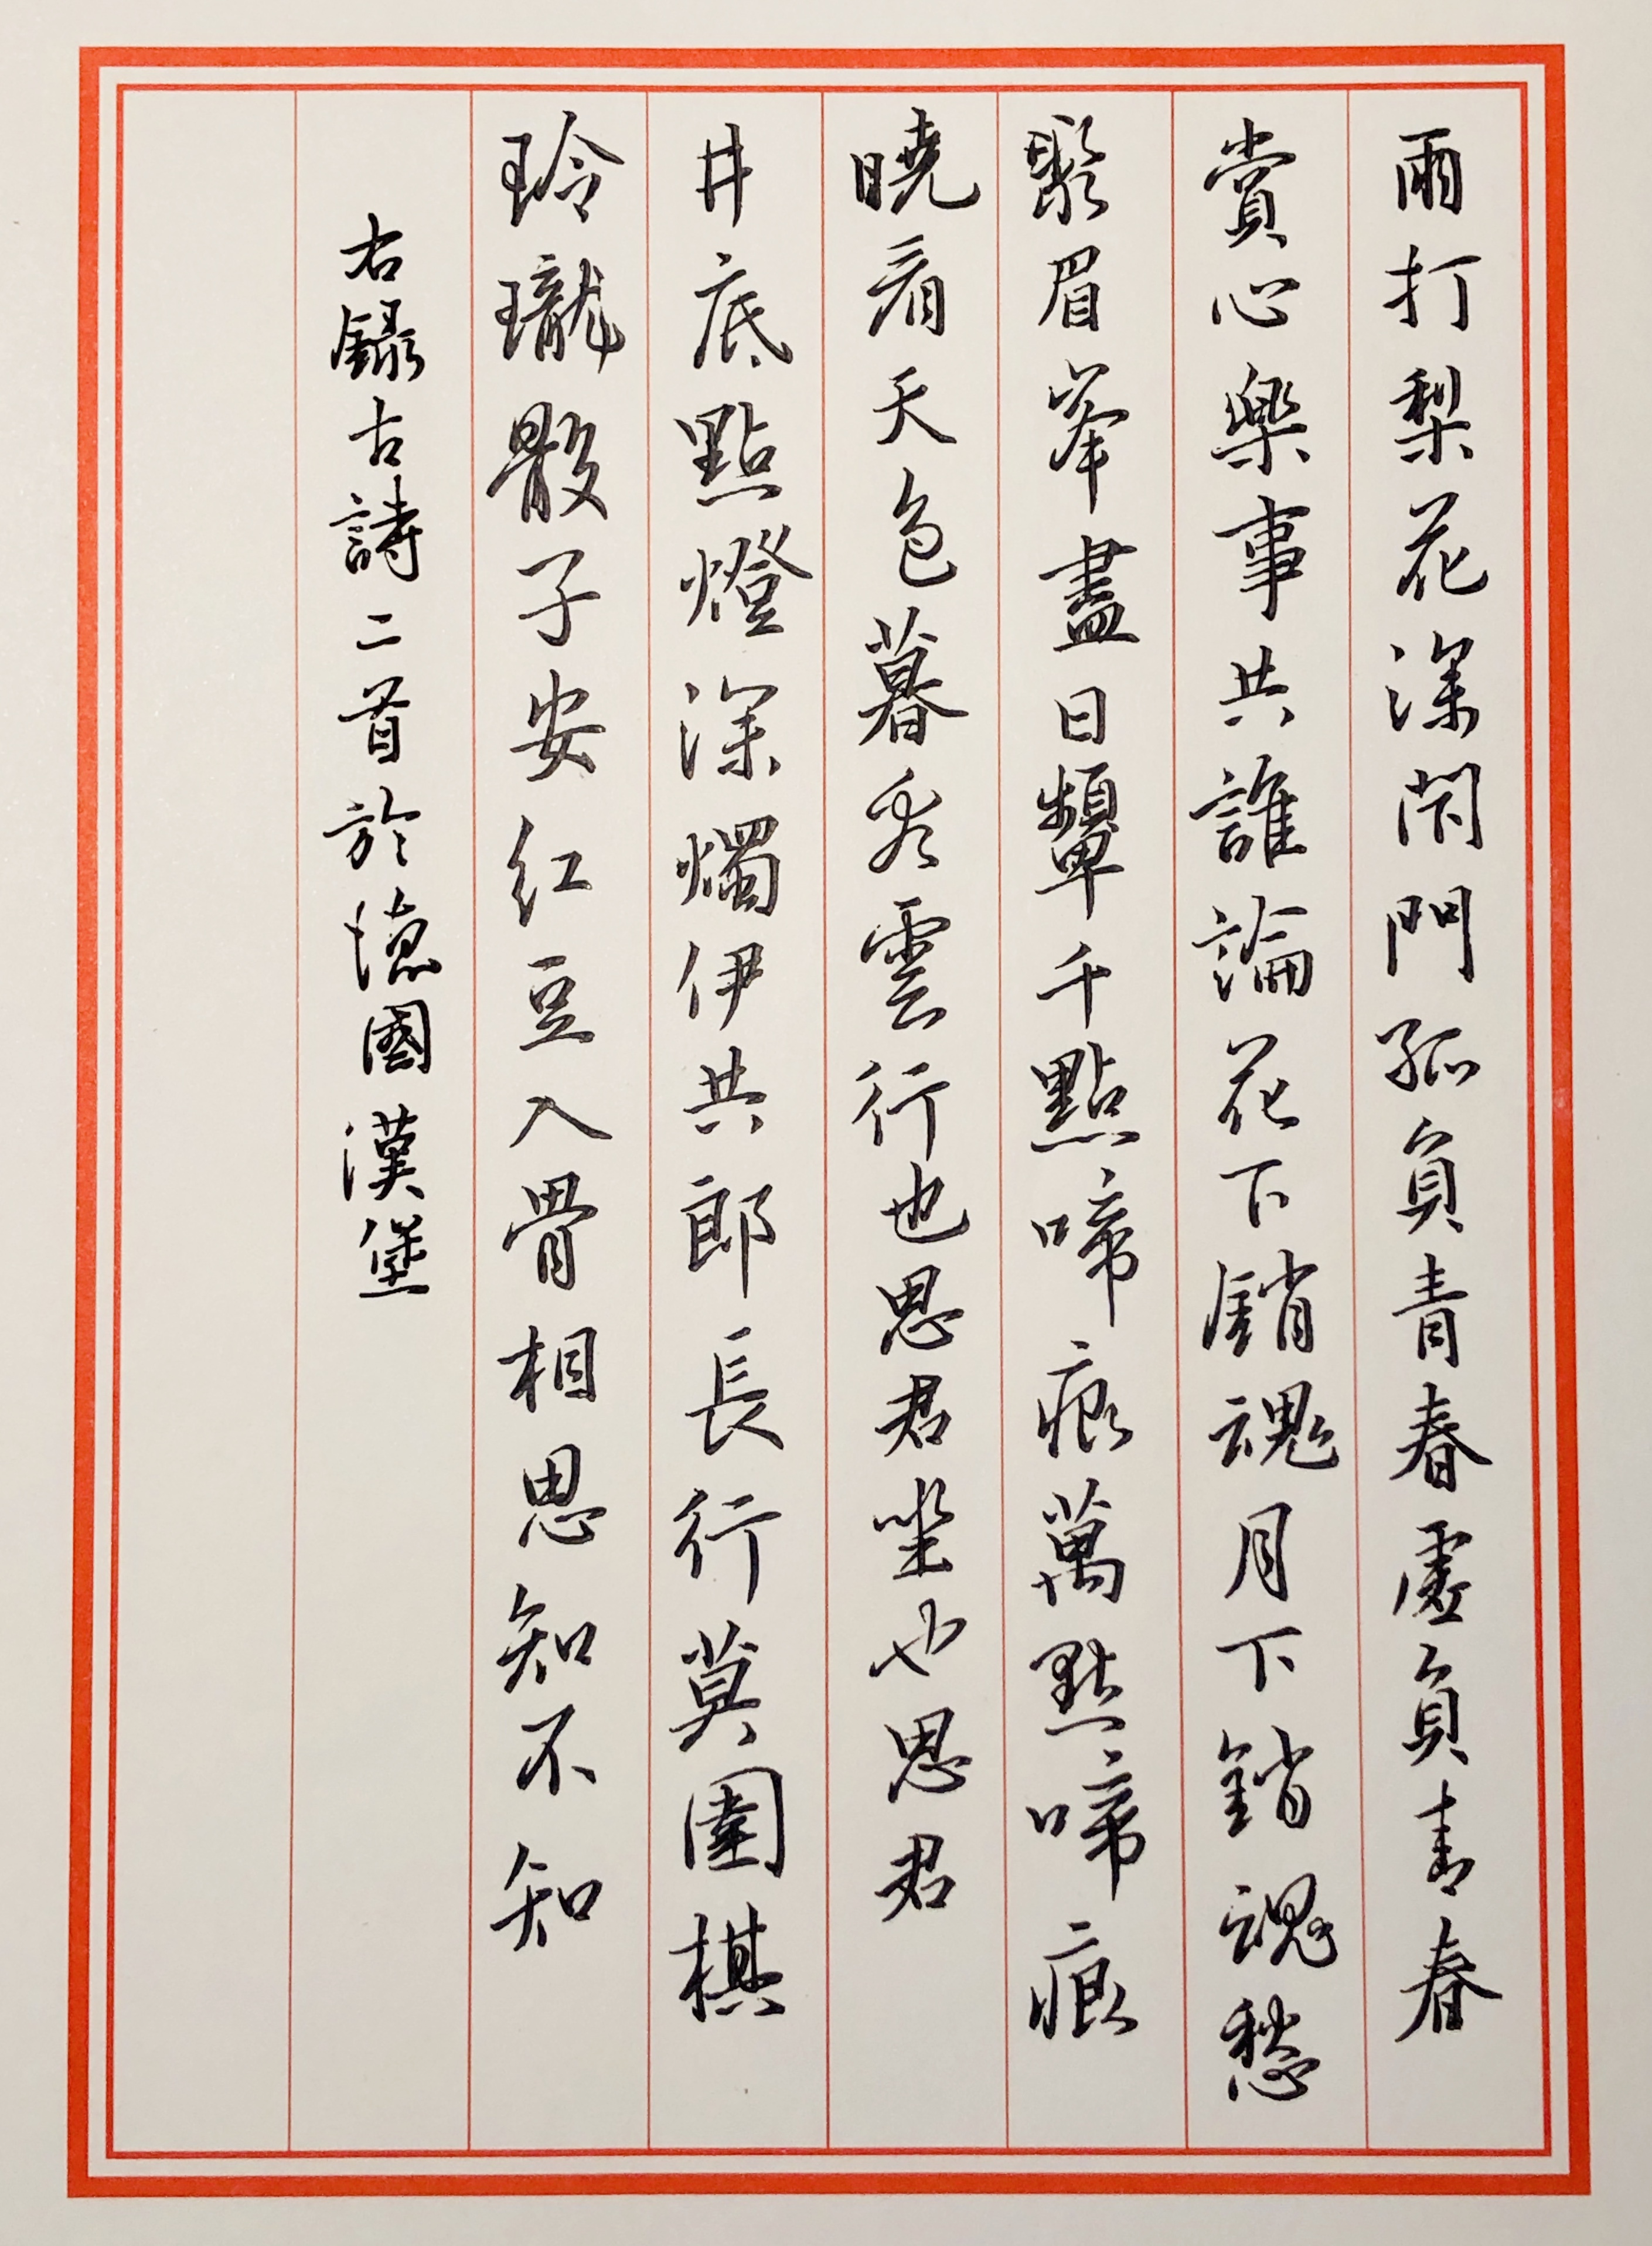 雨打梨花深閇門孤負青春虛負青春
賞心樂事共誰論花下銷魂月下銷魂愁
聚眉峯盡日顰千點啼痕萬點啼痕
曉看天色暮看雲行也思君坐也思君
井底點燈深燭伊共郎長行莫圍棋
玲瓏骰子安红豆入骨相思知不知
右錄古詩二首於德國漢堡